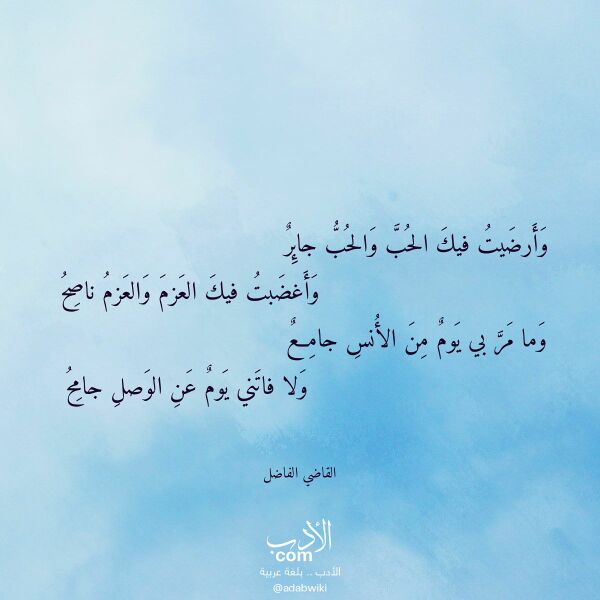 وَأَرضَيتُ فيكَ الحُبَّ وَالحُبُّ جائِرٌ
وَأَغضَبتُ فيكَ العَزمَ وَالعَزمُ ناصِحُ
وَما مَرَّ بي يَومٌ مِنَ الأُنسِ جامِعٌ
وَلا فاتَني يَومٌ عَنِ الوَصلِ جامِحُ
القاضي الفاضل
الأدب
com
الأدب .. بلغة عربية
@adabwiki